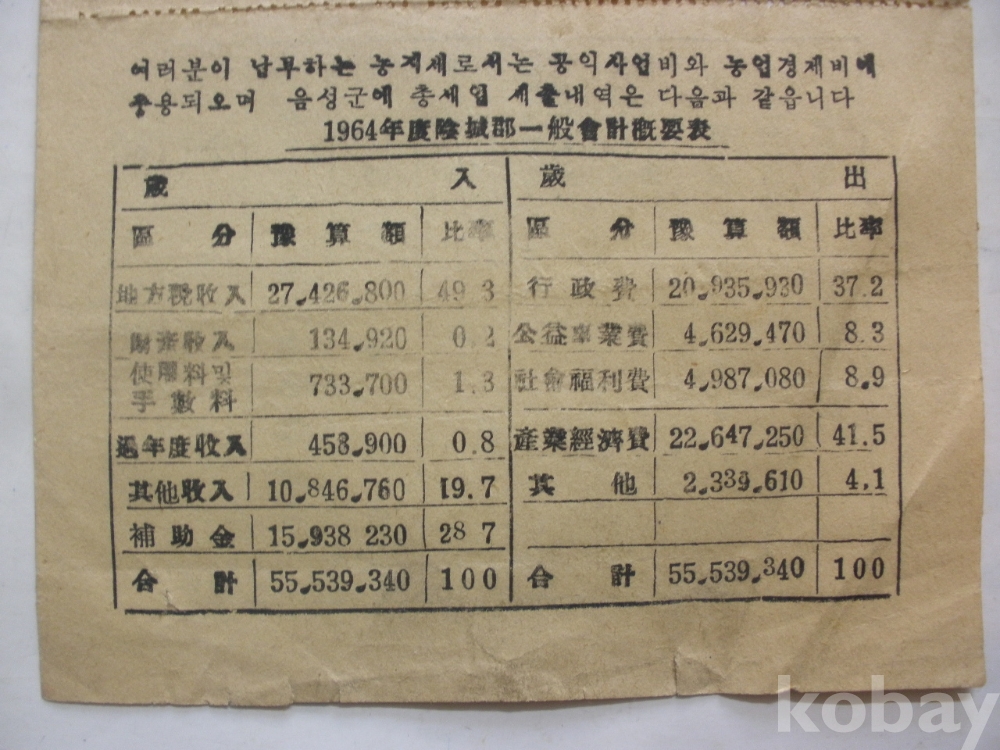 여러분이 납부하는 농지세로서는 공익사업비와 농업경제비에
충용되오며 음성군에 총세입 세출내역은 다음과 같읍니다
1964年度陰城郡一般會計槪要表
歲 入 歲 出
區 分 豫算額 比率 區 分 豫算額 比率
地方稅收入 27,426,800 49.3 行政費 20,935,930 37.2
財産收入 134,920 0.2 公益事業費 4,629,470 8.3
使用料및
手數料 733,700 1.3 社會福利費 4,987,080 8.9
過年度收入 458,900 0.8 産業經濟費 22,647,250 41.5
其他收入 10,846,760 19.7 其 他 2,339,610 4.1
補助金 15,938 230 28 7
合 計 55,539,340 100 合 計 55,539,340 100
kobay